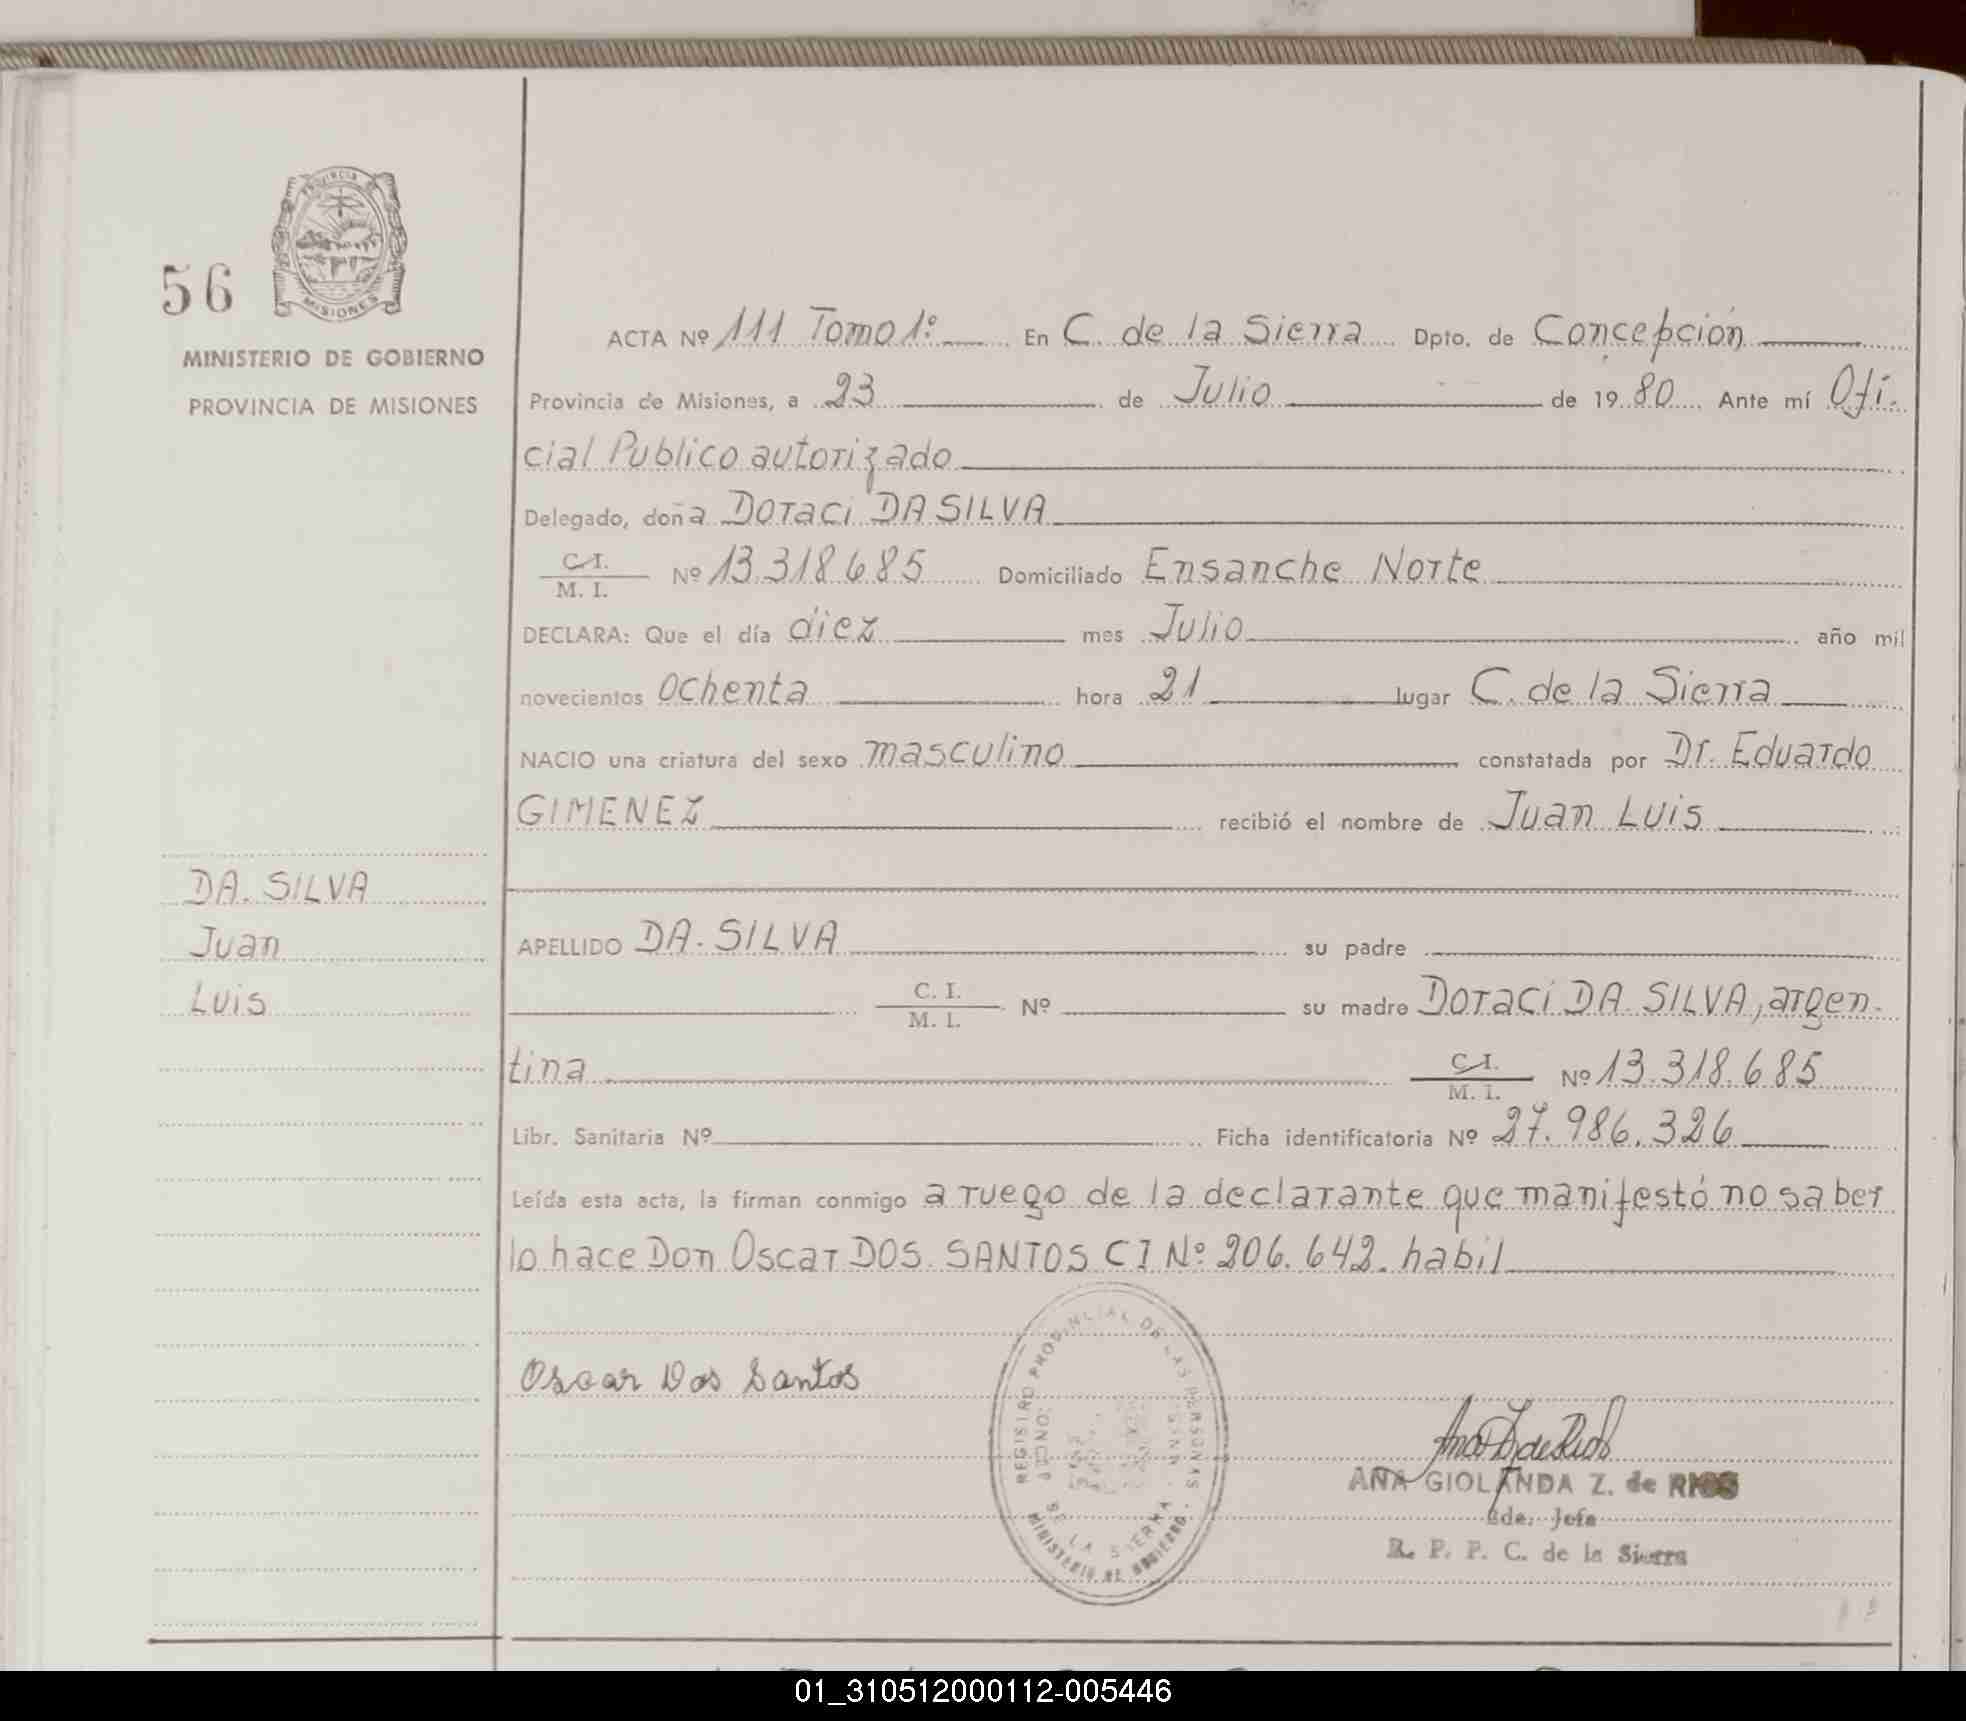 PROVINCIA DE
MISIONES
56
MINISTERIO DE GOBIERNO
PROVINCIA DE MISIONES
DA. SILVA
Juan
Luis
ACTA Nº 111 Tomo 1º En C. de la Sierra Dpto. de Concepción
Provincia de Misiones, a 23 de Julio de 1980 Ante mí Ofi-
cial Publico autorizado
Delegado, doña Doraci DA SILVA
C. I. / M. I. Nº 13.318.685 Domiciliado Ensanche Norte
DECLARA: Que el día diez mes Julio año mil
novecientos ochenta hora 21 lugar C. de la Sierra
NACIO una criatura del sexo masculino constatada por Dr. Eduardo
GIMENEZ recibió el nombre de Juan Luis
APELLIDO DA. SILVA su padre
C. I. / M. I. Nº su madre Doraci DA. SILVA, argen-
tina C. I. / M. I. Nº 13.318.685
Libr. Sanitaria Nº Ficha identificatoria Nº 27.986.326
Leída esta acta, la firman conmigo a ruego de la declarante que manifestó no saber
lo hace Don Oscar DOS. SANTOS C I Nº 206.642. habil
Oscar Dos Santos
REGISTRO PROVINCIAL DE LAS PERSONAS
DE LA SIERRA
MINISTERIO DE GOBIERNO
Ana Z de Rios
ANA GIOLANDA Z. de RIOS
Jefe
R. P. P. C. de la Sierra
01_310512000112-005446